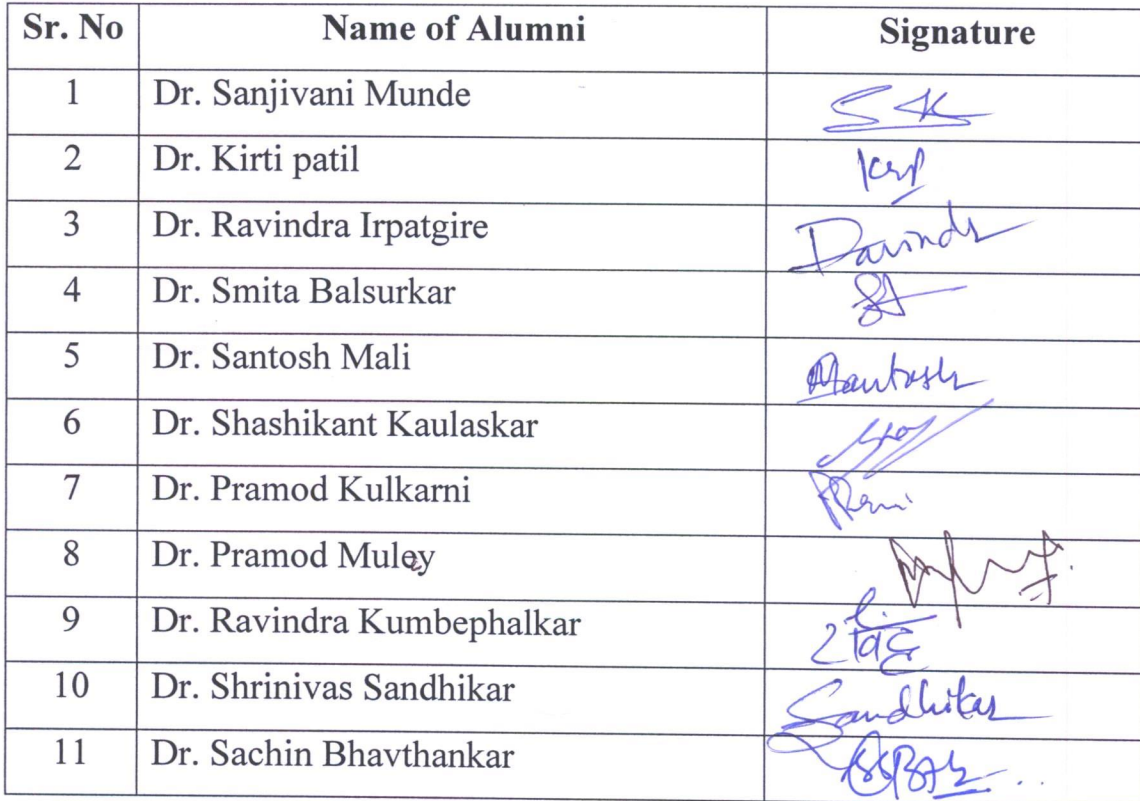 Sr. No Name of Alumni Signature
1 Dr. Sanjivani Munde SK
2 Dr. Kirti patil
3 Dr. Ravindra Irpatgire
4 Dr. Smita Balsurkar
5 Dr. Santosh Mali
6 Dr. Shashikant Kaulaskar
7 Dr. Pramod Kulkarni
8 Dr. Pramod Muley
9 Dr. Ravindra Kumbephalkar
10 Dr. Shrinivas Sandhikar Sandhikar
11 Dr. Sachin Bhavthankar